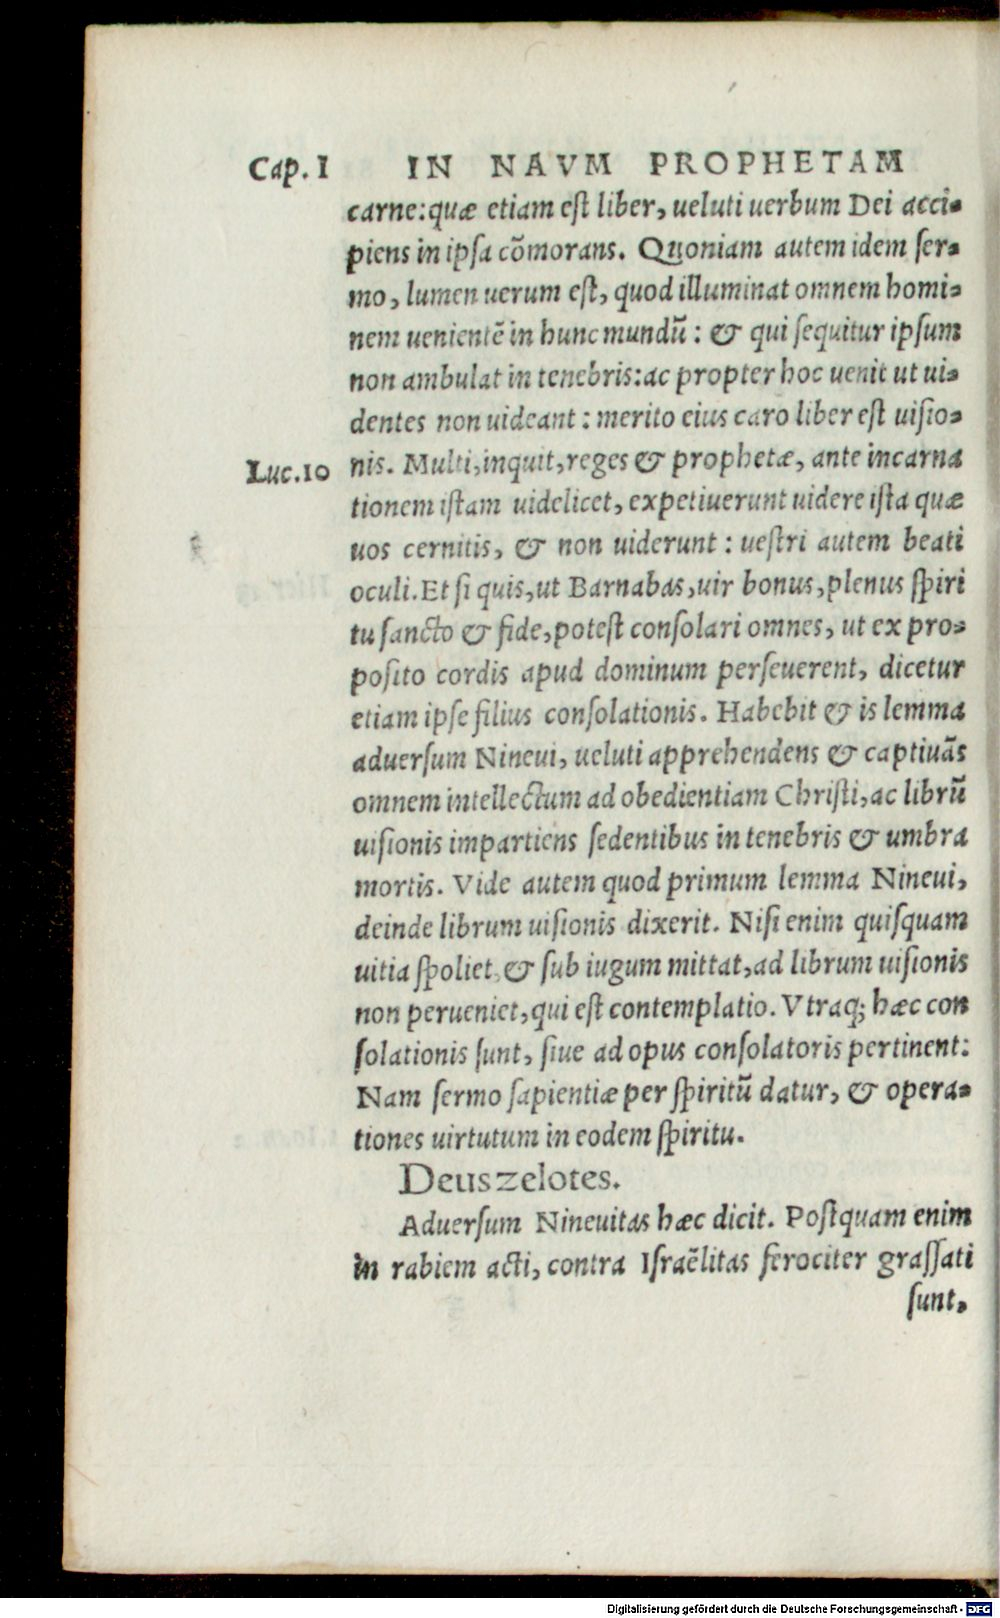 Cap. I IN NAVM PROPHETAM
carne: quæ etiam est liber, ueluti uerbum Dei acci-
piens in ipsa cōmorans. Quoniam autem idem ser-
mo, lumen uerum est, quod illuminat omnem homi-
nem uenientē in hunc mundū: & qui sequitur ipsum
non ambulat in tenebris: ac propter hoc uenit ut ui-
dentes non uideant: merito eius caro liber est uisio-
Luc. 10 nis. Multi, inquit, reges & prophetæ, ante incarna
tionem istam uidelicet, expetiuerunt uidere ista quæ
uos cernitis, & non uiderunt: uestri autem beati
oculi. Et si quis, ut Barnabas, uir bonus, plenus spiri
tu sancto & fide, potest consolari omnes, ut ex pro-
posito cordis apud dominum perseuerent, dicetur
etiam ipse filius consolationis. Habebit & is lemma
aduersum Nineui, ueluti apprehendens & captiuās
omnem intellectum ad obedientiam Christi, ac librū
uisionis impartiens sedentibus in tenebris & umbra
mortis. Vide autem quod primum lemma Nineui,
deinde librum uisionis dixerit. Nisi enim quisquam
uitia spoliet & sub iugum mittat, ad librum uisionis
non perueniet, qui est contemplatio. Vtraq; hæc con
solationis sunt, siue ad opus consolatoris pertinent:
Nam sermo sapientiæ per spiritū datur, & opera-
tiones uirtutum in eodem spiritu.
Deus zelotes.
Aduersum Nineuitas hæc dicit. Postquam enim
in rabiem acti, contra Israēlitas ferociter grassati
sunt,
Digitalisierung gefördert durch die Deutsche Forschungsgemeinschaft - DFG